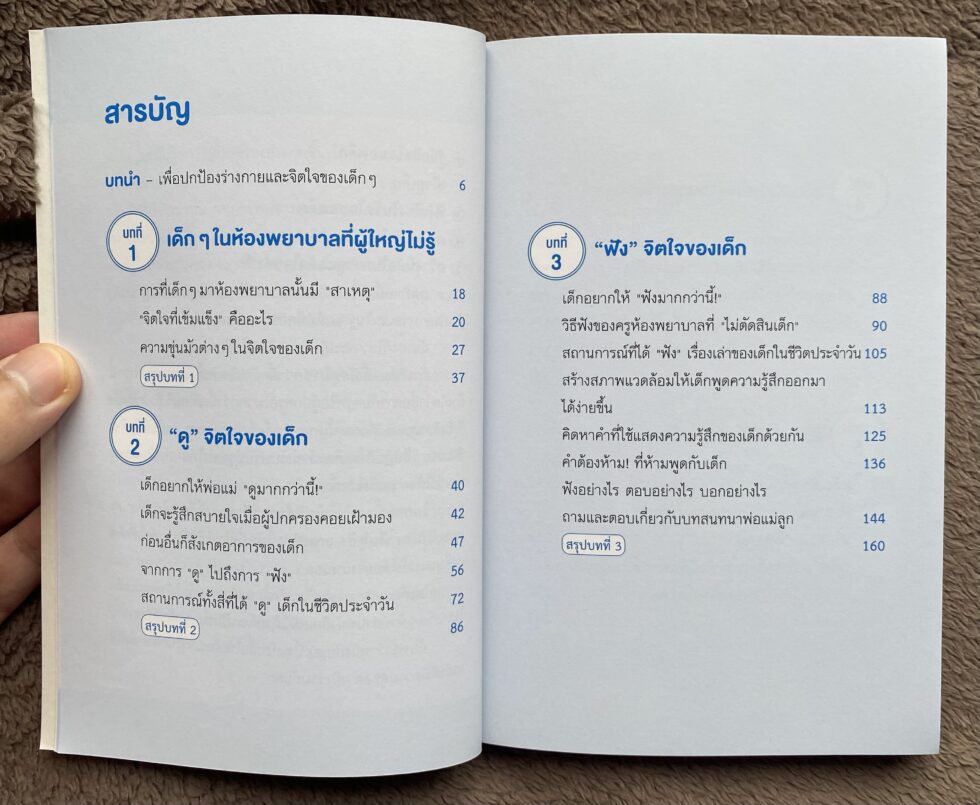 สารบัญ
บทนำ – เพื่อปกป้องร่างกายและจิตใจของเด็กๆ 6
บทที่ 1 เด็กๆ ในห้องพยาบาลที่ผู้ใหญ่ไม่รู้
การที่เด็กๆ มาห้องพยาบาลนั้นมี "สาเหตุ" 18
"จิตใจที่เข้มแข็ง" คืออะไร 20
ความขุ่นมัวต่างๆ ในจิตใจของเด็ก 27
สรุปบทที่ 1 37
บทที่ 2 “ดู” จิตใจของเด็ก
เด็กอยากให้พ่อแม่ "ดูมากกว่านี้!" 40
เด็กจะรู้สึกสบายใจเมื่อผู้ปกครองคอยเฝ้ามอง 42
ก่อนอื่นก็สังเกตอาการของเด็ก 47
จากการ "ดู" ไปถึงการ "ฟัง" 56
สถานการณ์ทั้งสี่ที่ได้ "ดู" เด็กในชีวิตประจำวัน 72
สรุปบทที่ 2 86
บทที่ 3 “ฟัง” จิตใจของเด็ก
เด็กอยากให้ "ฟังมากกว่านี้!" 88
วิธีฟังของครูห้องพยาบาลที่ "ไม่ตัดสินเด็ก" 90
สถานการณ์ที่ได้ "ฟัง" เรื่องเล่าของเด็กในชีวิตประจำวัน 105
สร้างสภาพแวดล้อมให้เด็กพูดความรู้สึกออกมา
ได้ง่ายขึ้น 113
คิดหาคำที่ใช้แสดงความรู้สึกของเด็กด้วยกัน 125
คำต้องห้าม! ที่ห้ามพูดกับเด็ก 136
ฟังอย่างไร ตอบอย่างไร บอกอย่างไร
ถามและตอบเกี่ยวกับบทสนทนาพ่อแม่ลูก 144
สรุปบทที่ 3 160